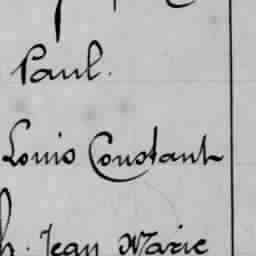 Paul.
Louis Constant
h. Jean Marie